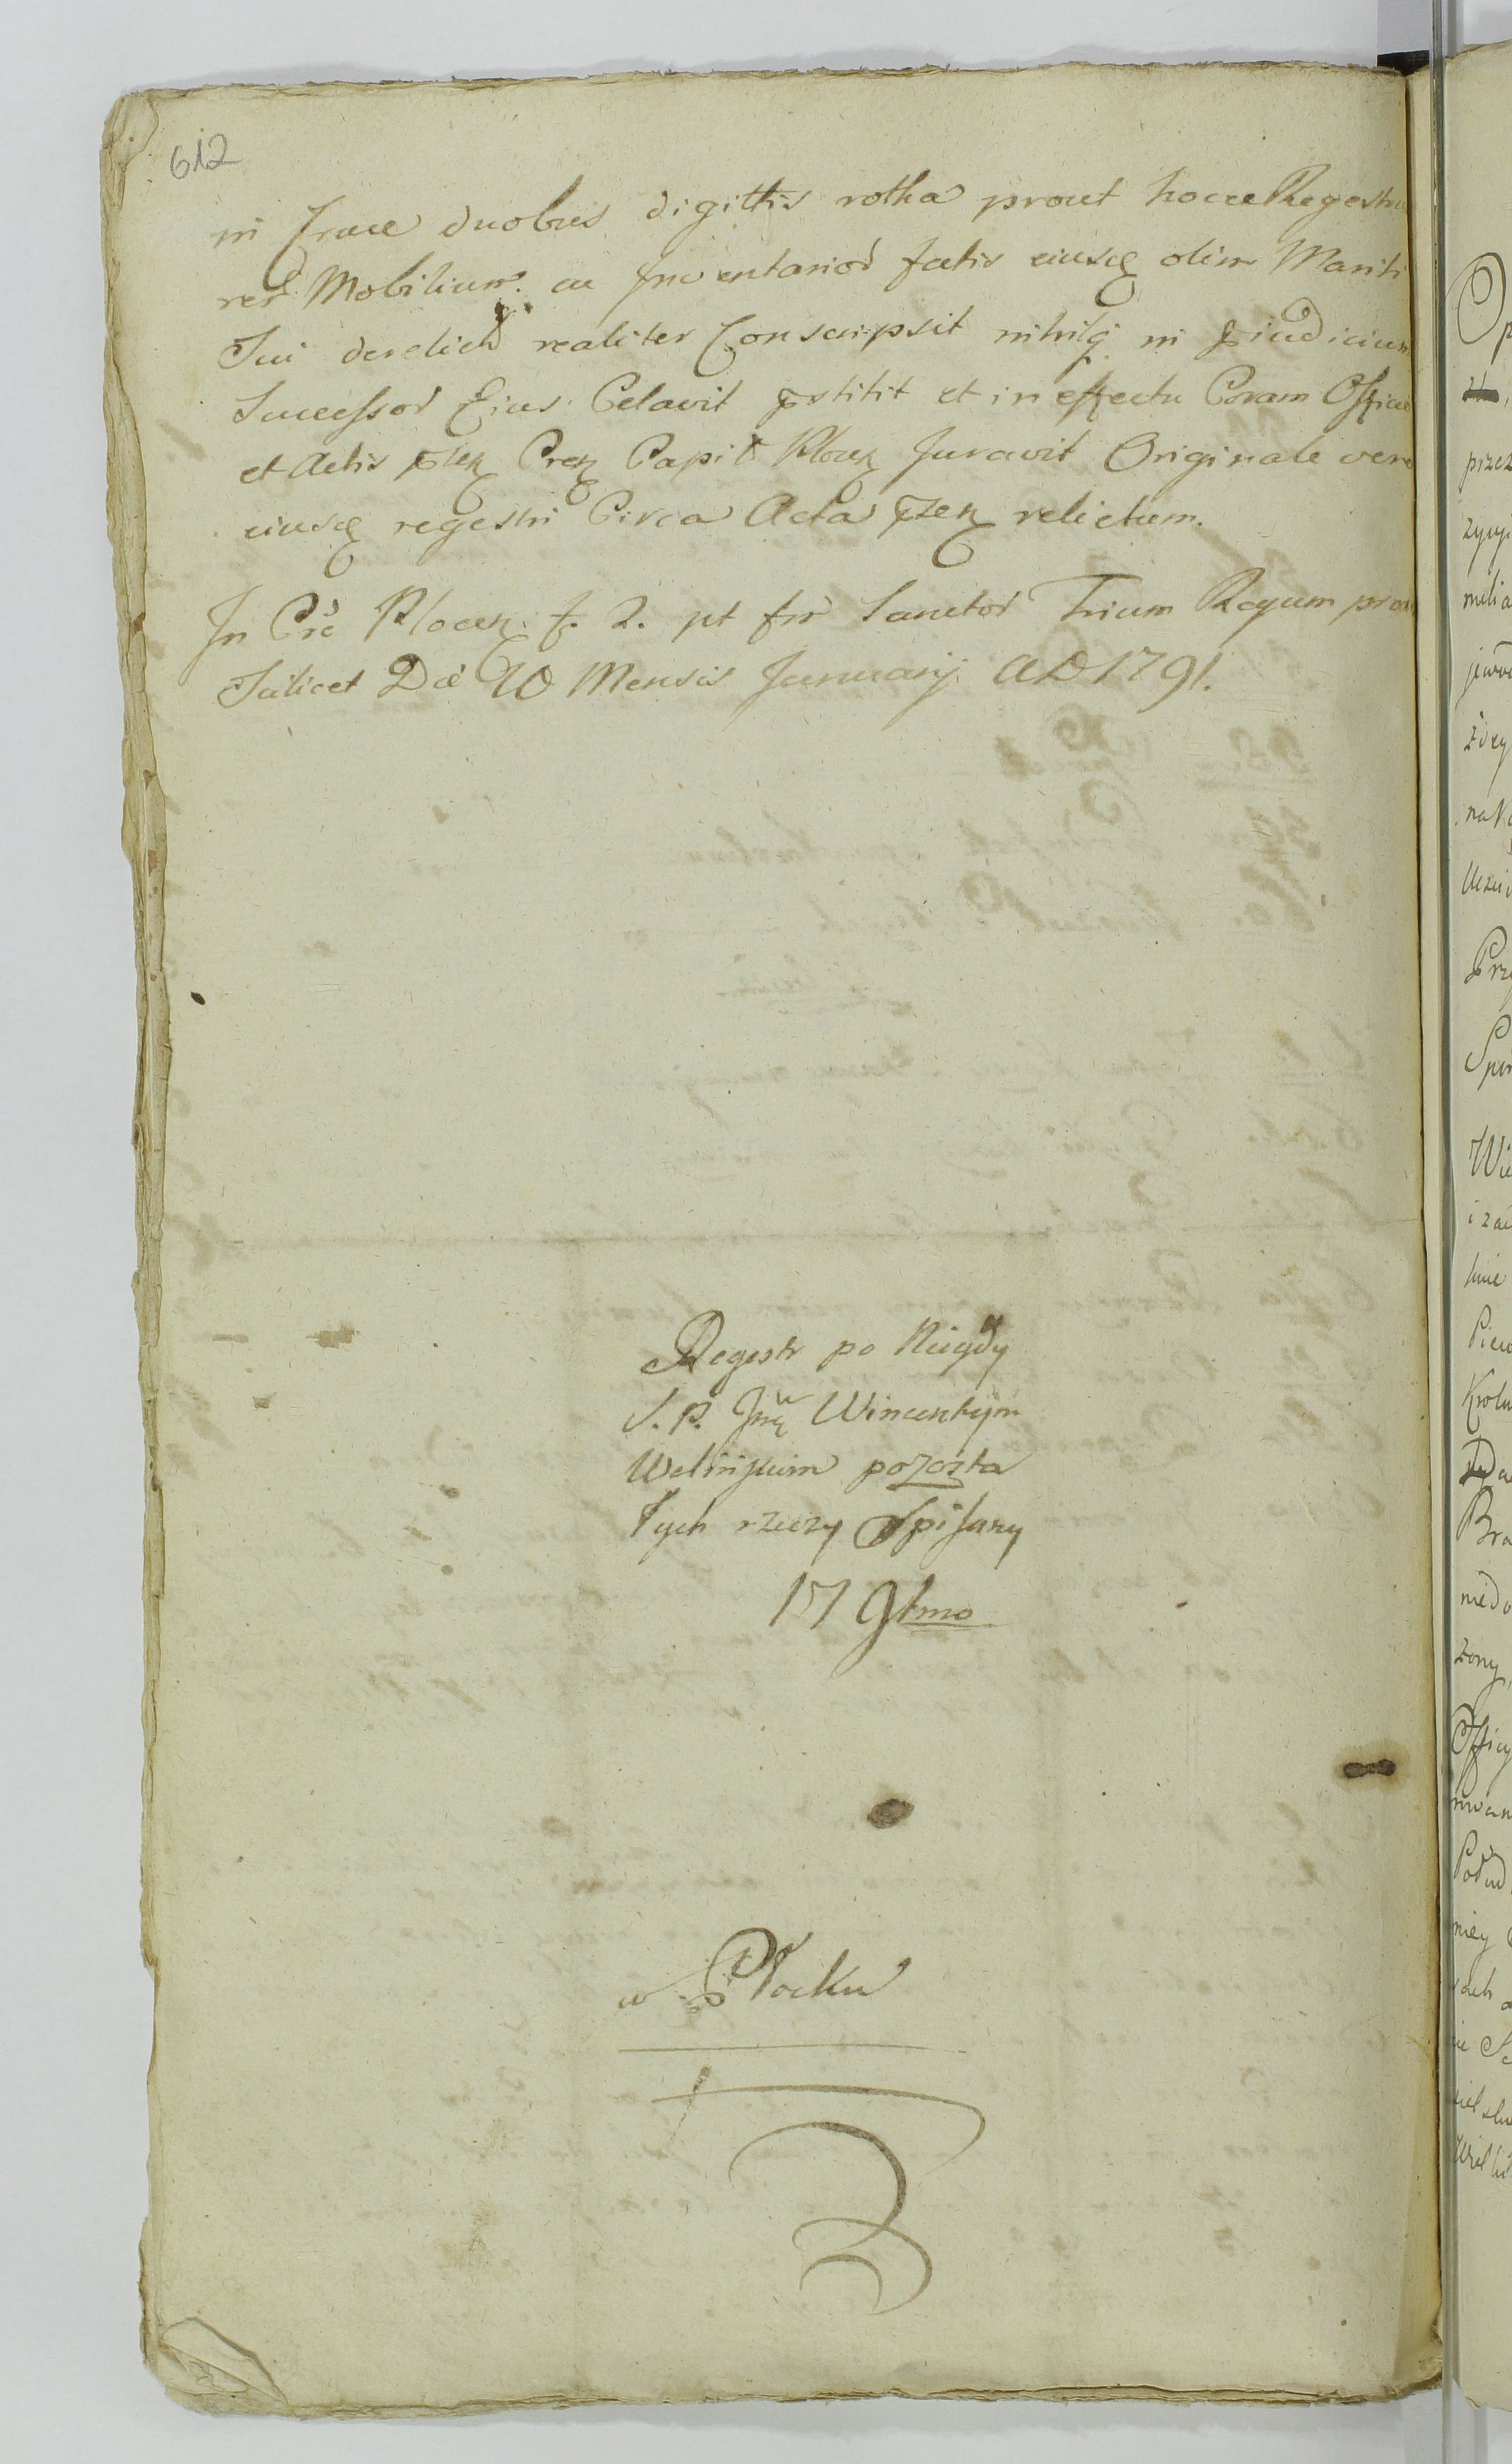 612
in Cruce duobus digittis rotha prout hocce Regestru
rer Mobilium ac Inventarior fatis eiusq olim Mariti
Sui derelict realiter Conscripsit nihilq in pjudicium
Successor Eius Celavit pstitit et in effectu Coram Officio
et Actis Crez Capit Plocen Juravit Originale vero
eiusq regestri Circa Acta relictum.
In Cre Plocen f. 2. pt fm Sanctor Trium Regum prox
Scilicet Die 10 Mensis January AD 1791.
Regestr po Niegdy
S. P. Jmę Wincentym
pozosta
łych rzeczy Spisany
1791mo
w Płocku